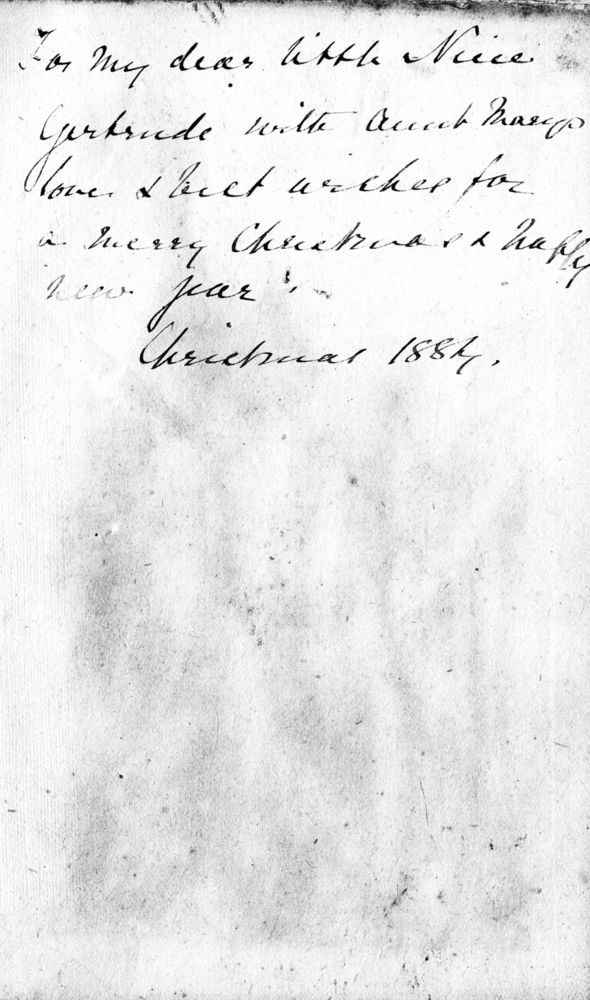 For my dear little Niece
Gertrude with Aunt Marys
love & best wishes for
a merry Christmas & happy
new year.
Christmas 1884.